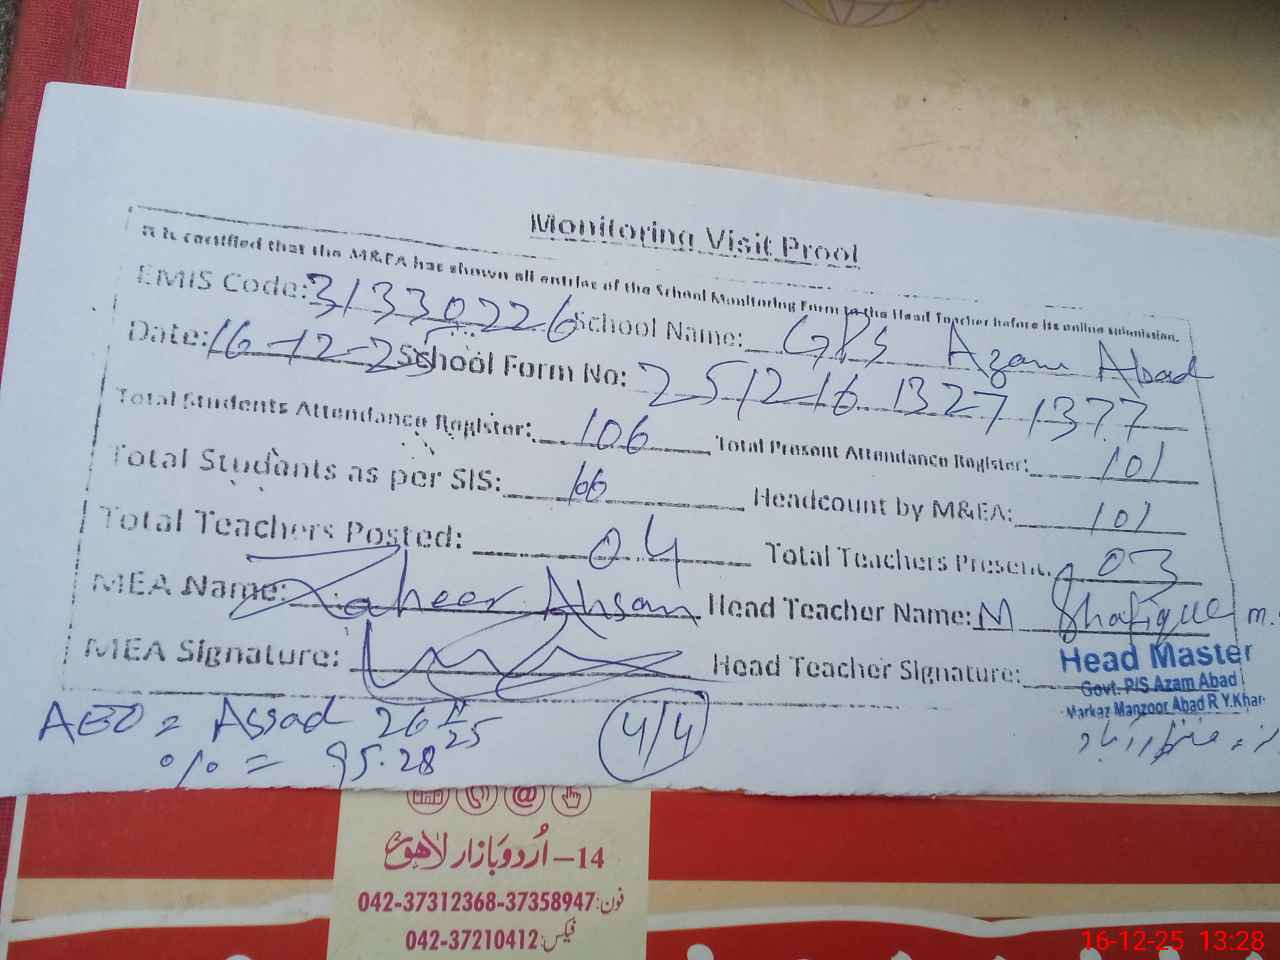 Monitoring Visit Proof
It is certified that the M&EA has shown all entries of the School Monitoring Form to the Head Teacher before its online submission.
EMIS Code: 31330226 School Name: GPS Azam Abad
Date: 16-12-25 School Form No: 25121613271377
Total Students Attendance Register: 106 Total Present Attendance Register: 101
Total Students as per SIS: 106 Headcount by M&EA: 101
Total Teachers Posted: 04 Total Teachers Present: 03
MEA Name: Zaheer Ahsan Head Teacher Name: M Shafique
MEA Signature: Head Teacher Signature:
Head Master
Govt. P/S Azam Abad
Markaz Manzoor Abad R Y.Khan
AEO = Assad 26 11 25
% = 95.28
4/4
14–اُردو بازار لاہور
فون: 042-37312368-37358947
فیکس: 042-37210412
16-12-25 13:28